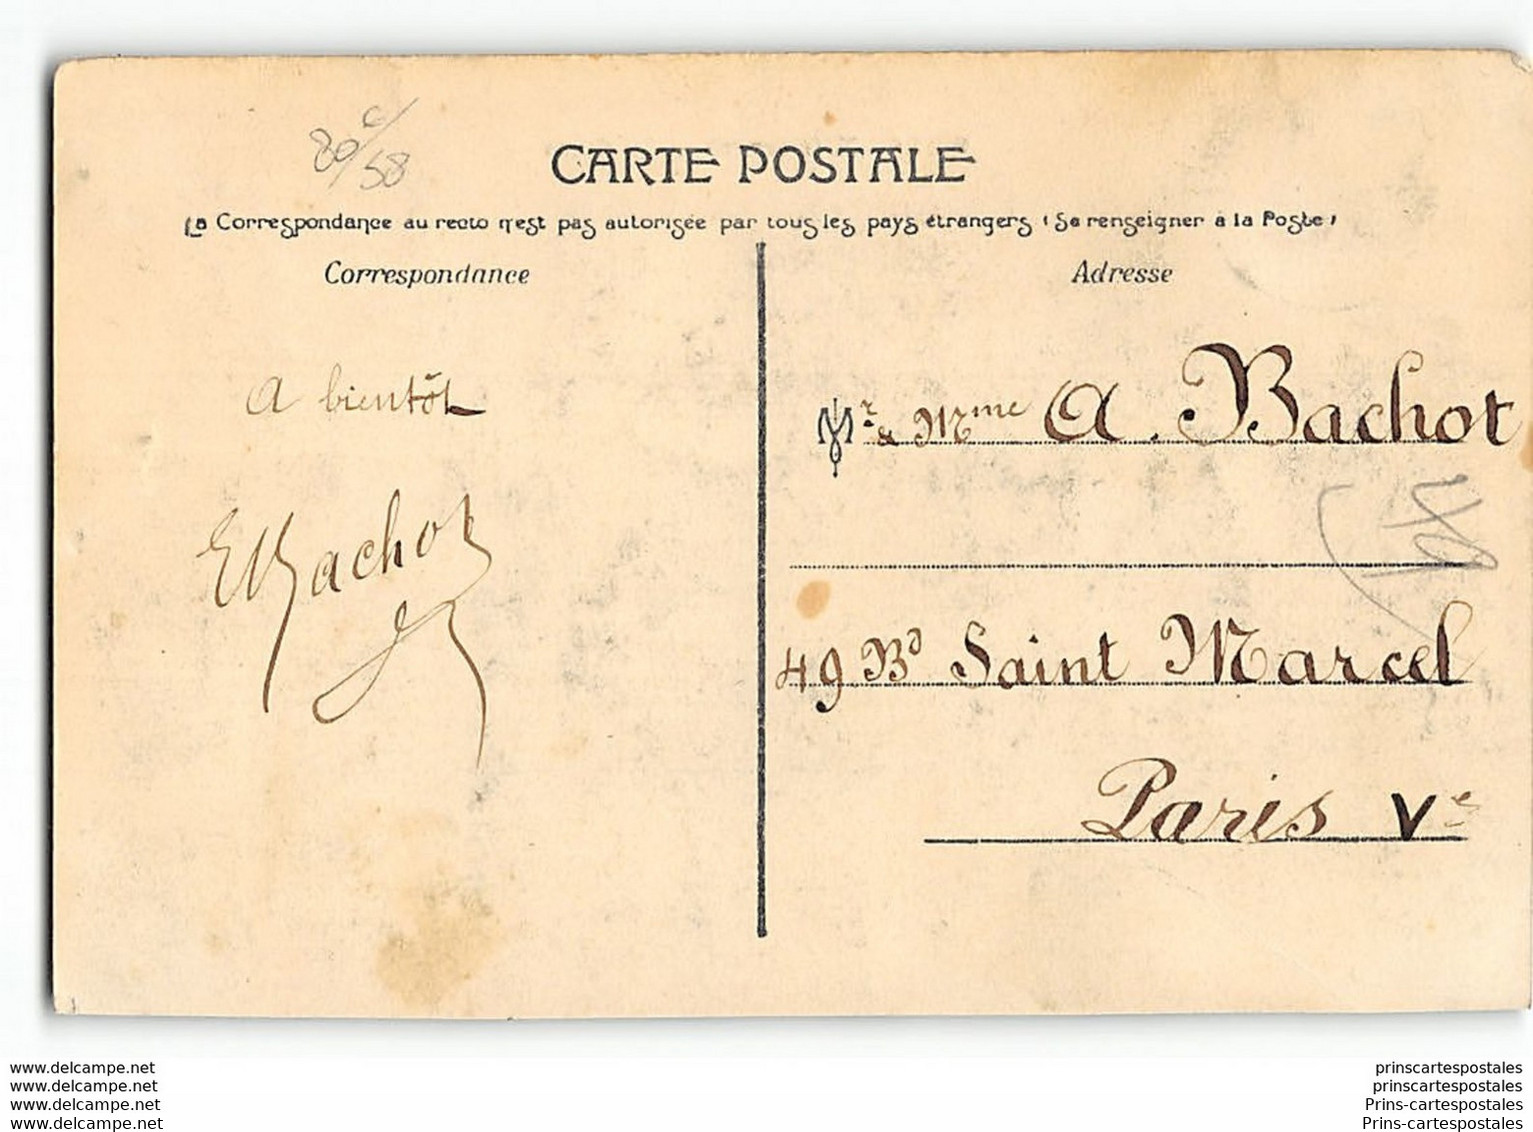 80c/58
CARTE POSTALE
La Correspondance au recto n'est pas autorisée par tous les pays étrangers (Se renseigner à la Poste)
Correspondance
A bientôt
EBachot
Adresse
Mr & Mme A. Bachot
49 Bd Saint Marcel
Paris Ve
www.delcampe.net
www.delcampe.net
www.delcampe.net
www.delcampe.net
prinscartespostales
prinscartespostales
Prins-cartespostales
Prins-cartespostales